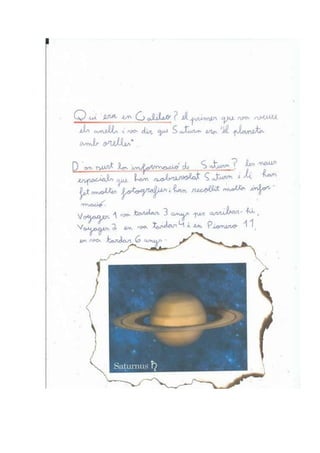 Qui era en Galileo? el primer que va veure
els anells i va dir que Saturn era "el planeta
amb orelles".
D'on surt la informació de Saturn? les naus
espacials que han sobrevolat Saturn i li han
fet moltes fotografies i han recollit molta infor-
mació.
Voyager 1 va tardar 3 anys per arribar-hi,
Voyager 2 en va tardar 4 i en Pionero 11,
en va tardar 6 anys.
Saturnus ♄